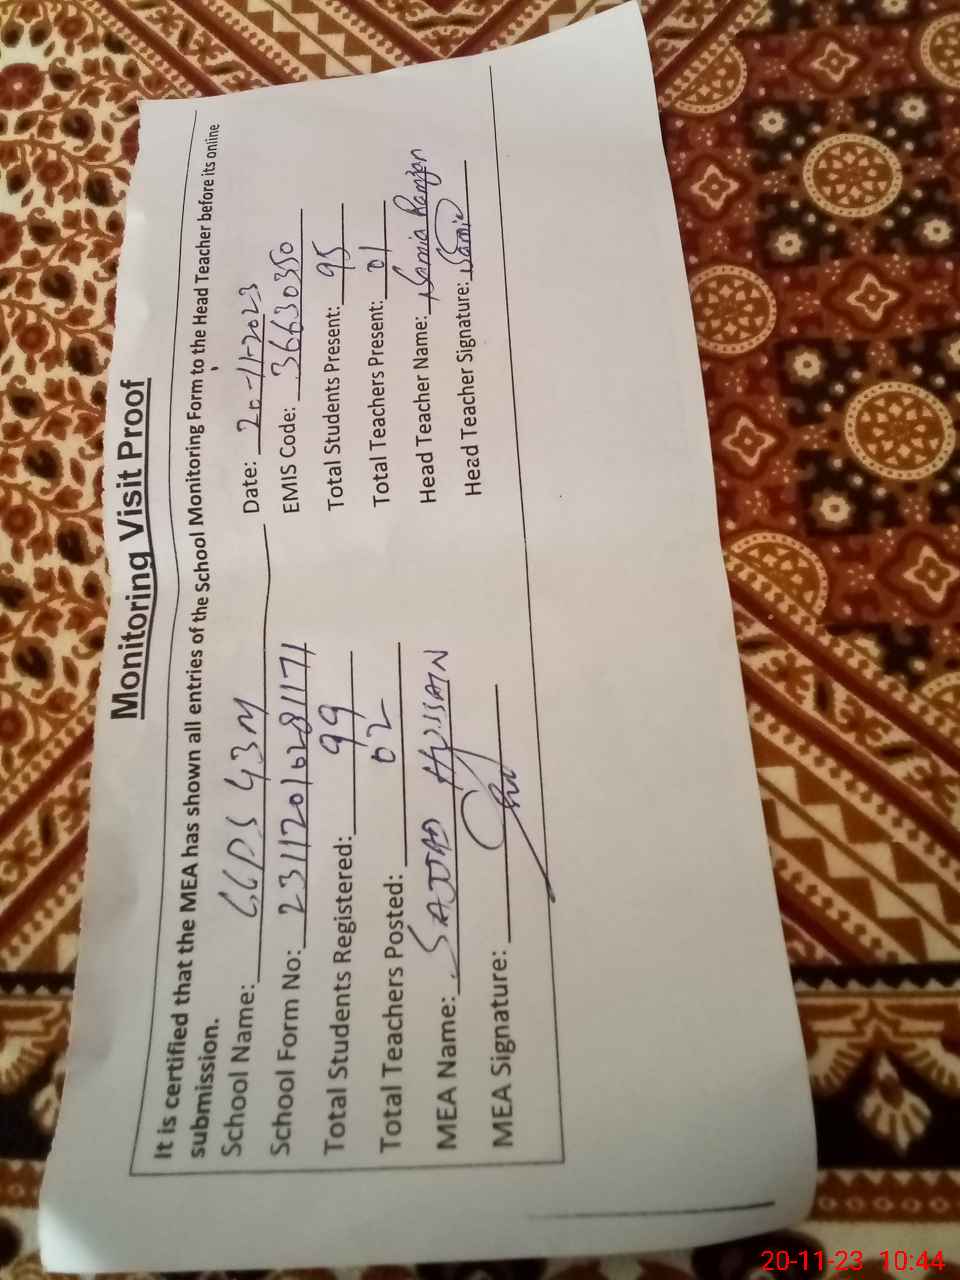 Monitoring Visit Proof
It is certified that the MEA has shown all entries of the School Monitoring Form to the Head Teacher before its online
submission.
School Name: GGPS 43M
Date: 20-11-2023
School Form No: 23112010281171
EMIS Code: 36630350
Total Students Registered: 99
Total Students Present: 95
Total Teachers Posted: 02
Total Teachers Present: 01
MEA Name: SAJJAD HUSSAIN
Head Teacher Name: Samia Ramzan
MEA Signature:
Head Teacher Signature: Samia
20-11-23 10:44